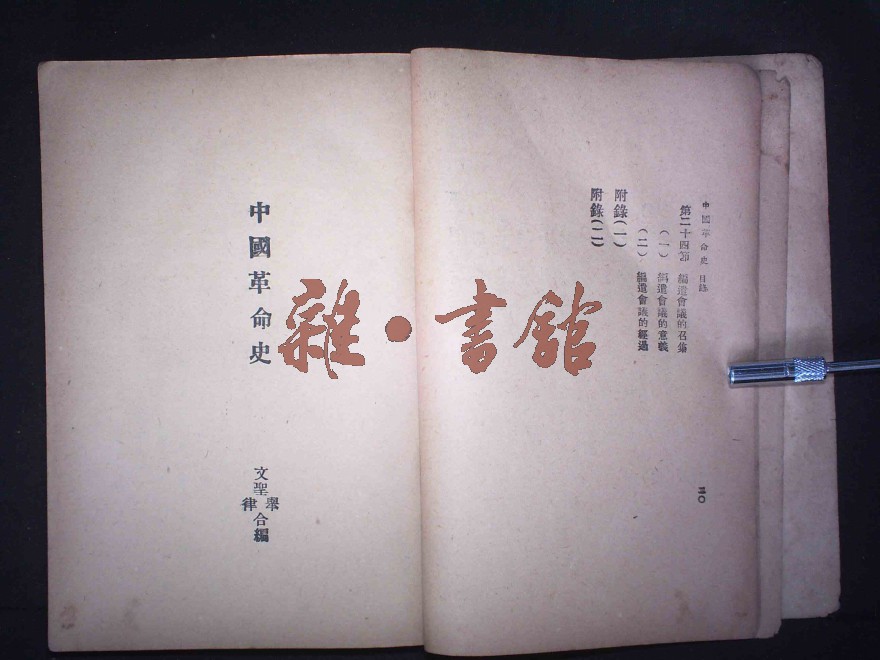 中國革命史 目錄
第二十四節 編遣會議的召集
(一) 編遣會議的意義
(二) 編遣會議的經過
附錄(一)
附錄(二)
二〇
中國革命史
文聖舉
律
合編
雜·書館